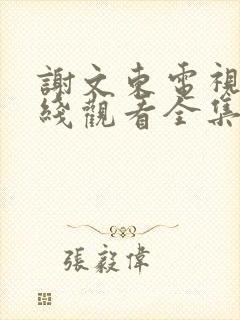 謝文東電視
綫觀看全集
張毅偉